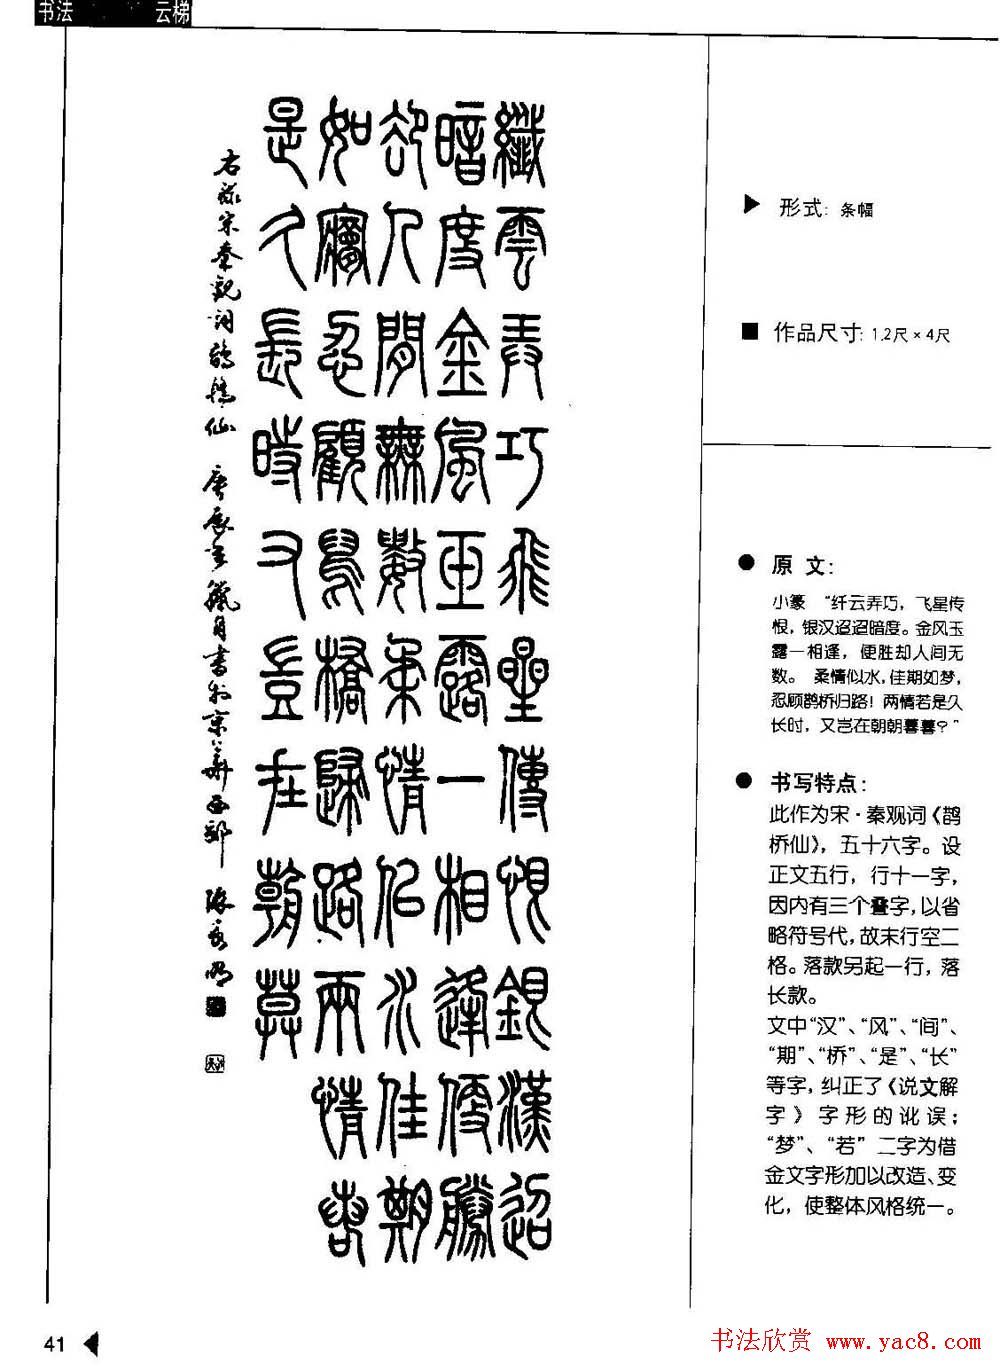 书法 云梯
纖雲弄巧飛星傳恨銀漢迢
暗度金風玉露一相逢便勝
却人間無數柔情似水佳期
如夢忍顧鵲橋歸路兩情若
是久長時又豈在朝莫
右錄宋秦觀詞鵲橋仙 庚辰年臘月書於京華西郊
▶ 形式：条幅
■ 作品尺寸：1.2尺×4尺
● 原 文：
小篆 “纤云弄巧，飞星传
恨，银汉迢迢暗度。金风玉
露一相逢，便胜却人间无
数。 柔情似水，佳期如梦，
忍顾鹊桥归路！两情若是久
长时，又岂在朝朝暮暮？”
● 书写特点：
此作为宋·秦观词《鹊
桥仙》，五十六字。设
正文五行，行十一字，
因内有三个叠字，以省
略符号代，故末行空二
格。落款另起一行，落
长款。
文中“汉”、“风”、“间”、
“期”、“桥”、“是”、“长”
等字，纠正了《说文解
字》字形的讹误；
“梦”、“若”二字为借
金文字形加以改造、变
化，使整体风格统一。
41
书法欣赏 www.yac8.com